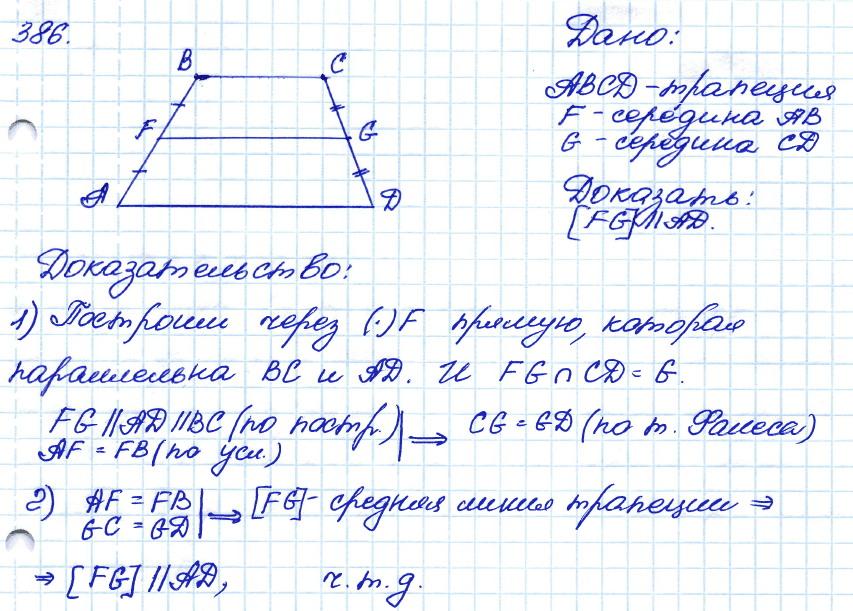 386.
B C
F G
A D
Дано:
ABCD - трапеция
F - середина AB
G - середина CD
Доказать:
[FG] || AD.
Доказательство:
1) Построим через (·) F прямую, которая
параллельна BC и AD. И FG ∩ CD = G.
FG || AD || BC (по постр.) | ⇒ CG = GD (по т. Фалеса)
AF = FB (по усл.)
2) AF = FB | ⇒ [FG] - средняя линия трапеции ⇒
GC = GD
⇒ [FG] || AD, ч.т.д.